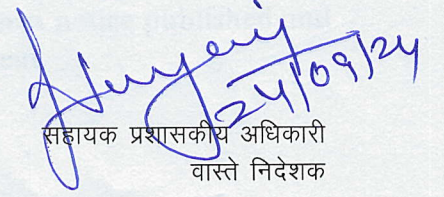 24/09/24
सहायक प्रशासकीय अधिकारी
वास्ते निदेशक